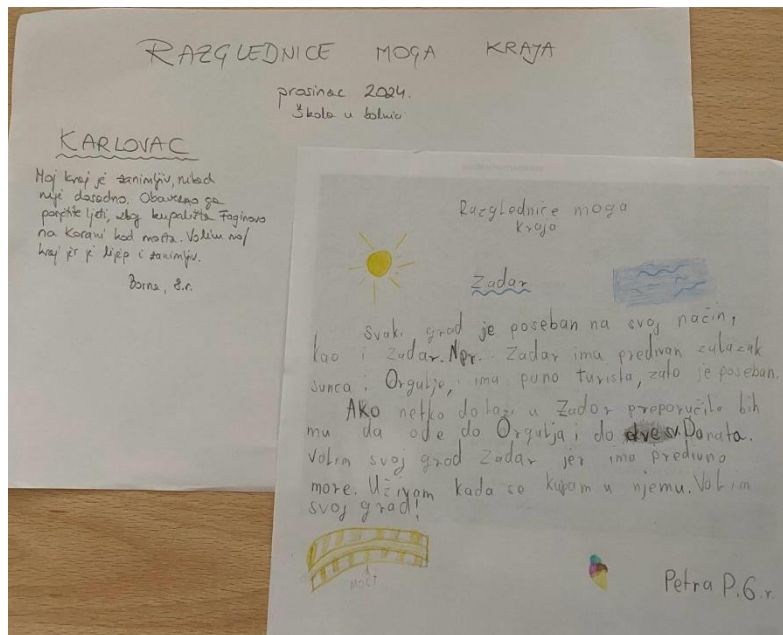 RAZGLEDNICE MOGA KRAJA
prosinac 2024.
Škola u bolnici
KARLOVAC
Moj kraj je zanimljiv, nikad
nije dosadno. Obavezno ga
posjetite ljeti, zbog kupališta Foginovo
na Korani kod mosta. Volim moj
kraj jer je lijep i zanimljiv.
Borna, 8.r.
Razglednice moga
kraja
Zadar
Svaki grad je poseban na svoj način,
kao i Zadar. Npr. Zadar ima predivan zalazak
sunca i Orgulje, ima puno turista, zato je poseban.
Ako netko dolazi u Zadar preporučila bih
mu da ode do Orgulja i do sv. Donata.
Volim svoj grad Zadar jer ima predivno
more. Uživam kada se kupam u njemu. Volim
svoj grad!
most
Petra P. 6.r.